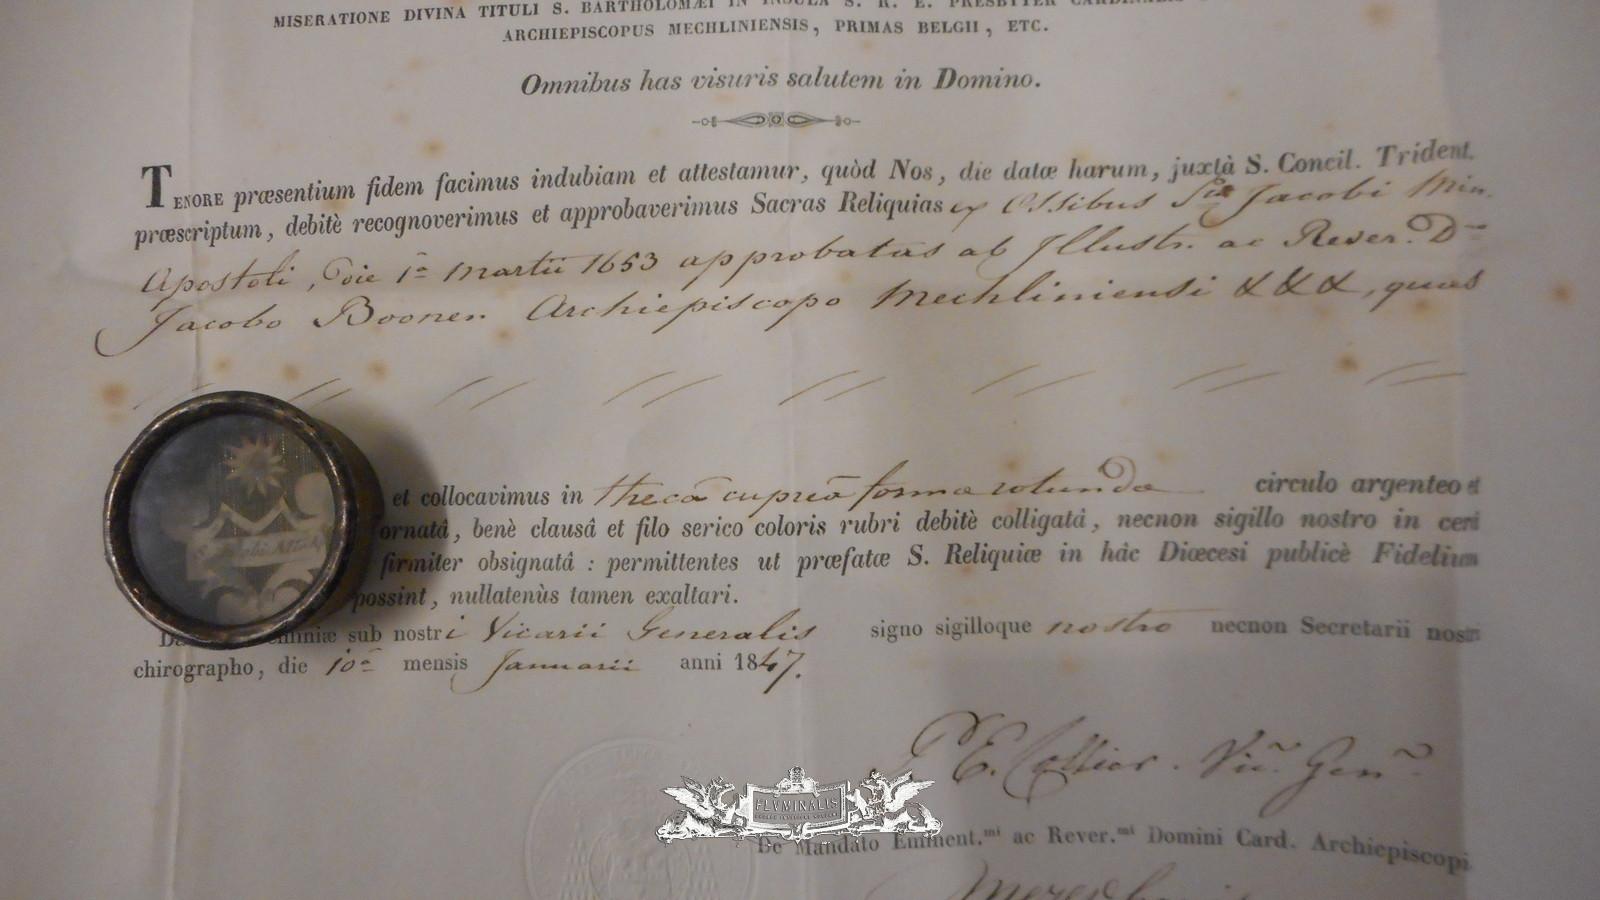 MISERATIONE DIVINA TITULI S. BARTHOLOMÆI IN INSULA S. R. E. PRESBYTER CARDINALIS
ARCHIEPISCOPUS MECHLINIENSIS, PRIMAS BELGII, ETC.
Omnibus has visuris salutem in Domino.
TENORE præsentium fidem facimus indubiam et attestamur, quòd Nos, die datæ harum, juxtà S. Concil. Trident.
præscriptum, debitè recognoverimus et approbaverimus Sacras Reliquias ex Ossibus Sti Jacobi Min.
Apostoli, die 1â Martii 1653 approbatas ab Illustr. ac Rever. D
Jacobo Boonen Archiepiscopo Mechliniensi &&&, quas
et collocavimus in thecâ cupreâ formæ rotundæ circulo argenteo et
ornatâ, benè clausâ et filo serico coloris rubri debitè colligatâ, necnon sigillo nostro in cerâ
firmiter obsignatâ : permittentes ut præfatæ S. Reliquiæ in hâc Diœcesi publicè Fidelium
possint, nullatenùs tamen exaltari.
sub nostri Vicarii Generalis signo sigilloque nostro necnon Secretarii nostri
chirographo, die 10â mensis Januarii anni 1847.
Vic. Gen.
FLVMINALIS
De Mandato Eminent.mi ac Rever.mi Domini Card. Archiepiscopi